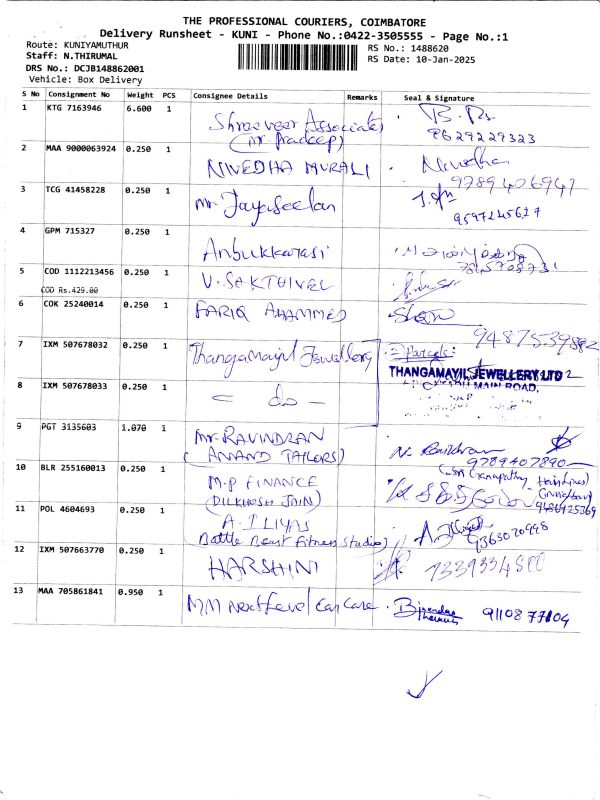 THE PROFESSIONAL COURIERS, COIMBATORE
Delivery Runsheet - KUNI - Phone No.:0422-3505555 - Page No.:1
Route: KUNIYAMUTHUR
RS No.: 1488620
Staff: N.THIRUMAL
RS Date: 10-Jan-2025
DRS No.: DCJB148862001
Vehicle: Box Delivery
S No Consignment No Weight PCS Consignee Details Remarks Seal & Signature
1 KTG 7163946 6.600 1 Shreeveer Associates
(Mr Pradeep) 8629229323
2 MAA 9000063924 0.250 1 NIVEDHA MURALI Nivedha
9789406947
3 TCG 41458228 0.250 1 Mr. Jayaseelan
9597245627
4 GPM 715327 0.250 1 Anbukkarasi
5 COD 1112213456 0.250 1 V. SAKTHIVEL
COD Rs.429.00
6 COK 25240014 0.250 1 FARIQ AHAMMED
7 IXM 507678032 0.250 1 Thangamayil Jewellery 2 Parcels:
THANGAMAYIL JEWELLERY LTD
MAIN ROAD,
8 IXM 507678033 0.250 1 - do -
9 PGT 3135603 1.070 1 Mr. RAVINDRAN
(ANAND TAILORS) 9789407890
10 BLR 255160013 0.250 1 M.P FINANCE
(DILKHOSH JAIN)
11 POL 4604693 0.250 1 A. ILIYAS
(Battle Beast Fitness Studio) 9363020998
12 IXM 507663770 0.250 1 HARSHINI
13 MAA 705861841 0.950 1 MM Next Level Car Care 9110877104